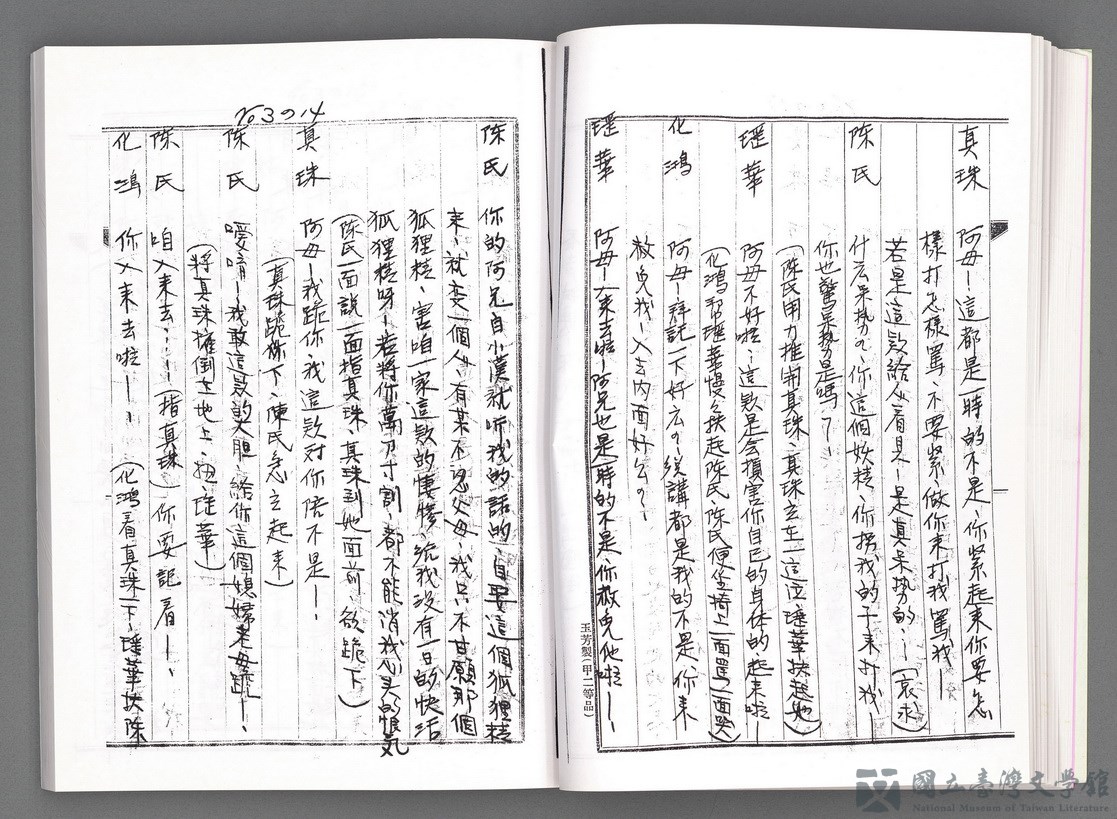 真珠 阿母ー這都是一時的不是、你緊起來你要怎
樣打怎樣罵、不要緊、做你來打我罵我ー
若是這款給人看見ー是真呆勢的、ー(哀求)
陳氏 什么呆勢の、你這個妖精、你拐我的子來打我ー
你也驚呆勢是嗎?ー
(陳氏用力推開真珠、真珠去在一邊泣、瑶華扶起她)
瑶華 阿母不好啦、這款是会損害你自己的身体的起來啦ー
(化鴻和瑶華慢々扶起陳氏、陳氏便坐椅上一面罵一面哭)
化鴻 阿母ー拜託一下好么の、総講都是我的不是、你來
赦免我ー入去内面好么の、ー
瑶華 阿母ー入來去啦ー阿兄也是一時的不是、你赦免他啦ー
玉芳製(甲二等品)
陳氏 你的阿兄自小漢就听我的話的、自娶這個狐狸精
來、就変一個人、有某不認父母、我只不甘願那個
狐狸精、害咱一家這款的悽慘、統我沒有一日的快活
狐狸精呀ー若將你萬刀寸割、都不能消我心头的恨気
(陳氏一面說一面指真珠、真珠到她面前、欲跪下)
真珠 阿母ー我跪你、我這款对你陪不是ー、
(真珠跪下、陳氏急立起來)
陳氏 噯唷ー我敢這款的大胆、給你這個媳婦來母跪ー、
(將真珠推倒在地上、扭瑶華)
陳氏 咱入來去、、ー(指真珠)你要記着ー、
化鴻 你入來去啦ー、、(化鴻看真珠一下、瑶華扶陳
國立臺灣文學館
National Museum of Taiwan Literature